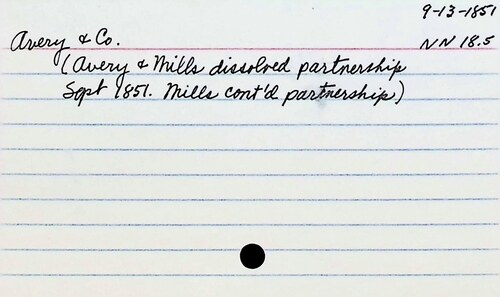 9-13-1851
Avery & Co.
NN 18.5
(Avery & Mills dissolved partnership
Sept 1851. Mills cont'd partnership)